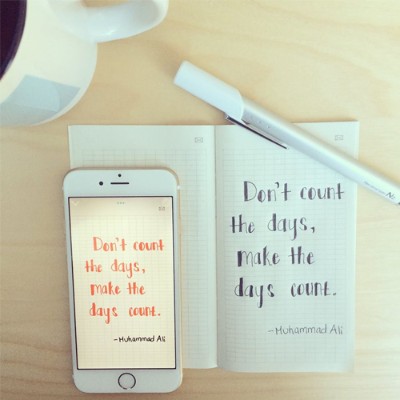 Don't count
the days,
make the
days count.
-Muhammad Ali
Don't count
the days,
make the
days count.
-Muhammad Ali